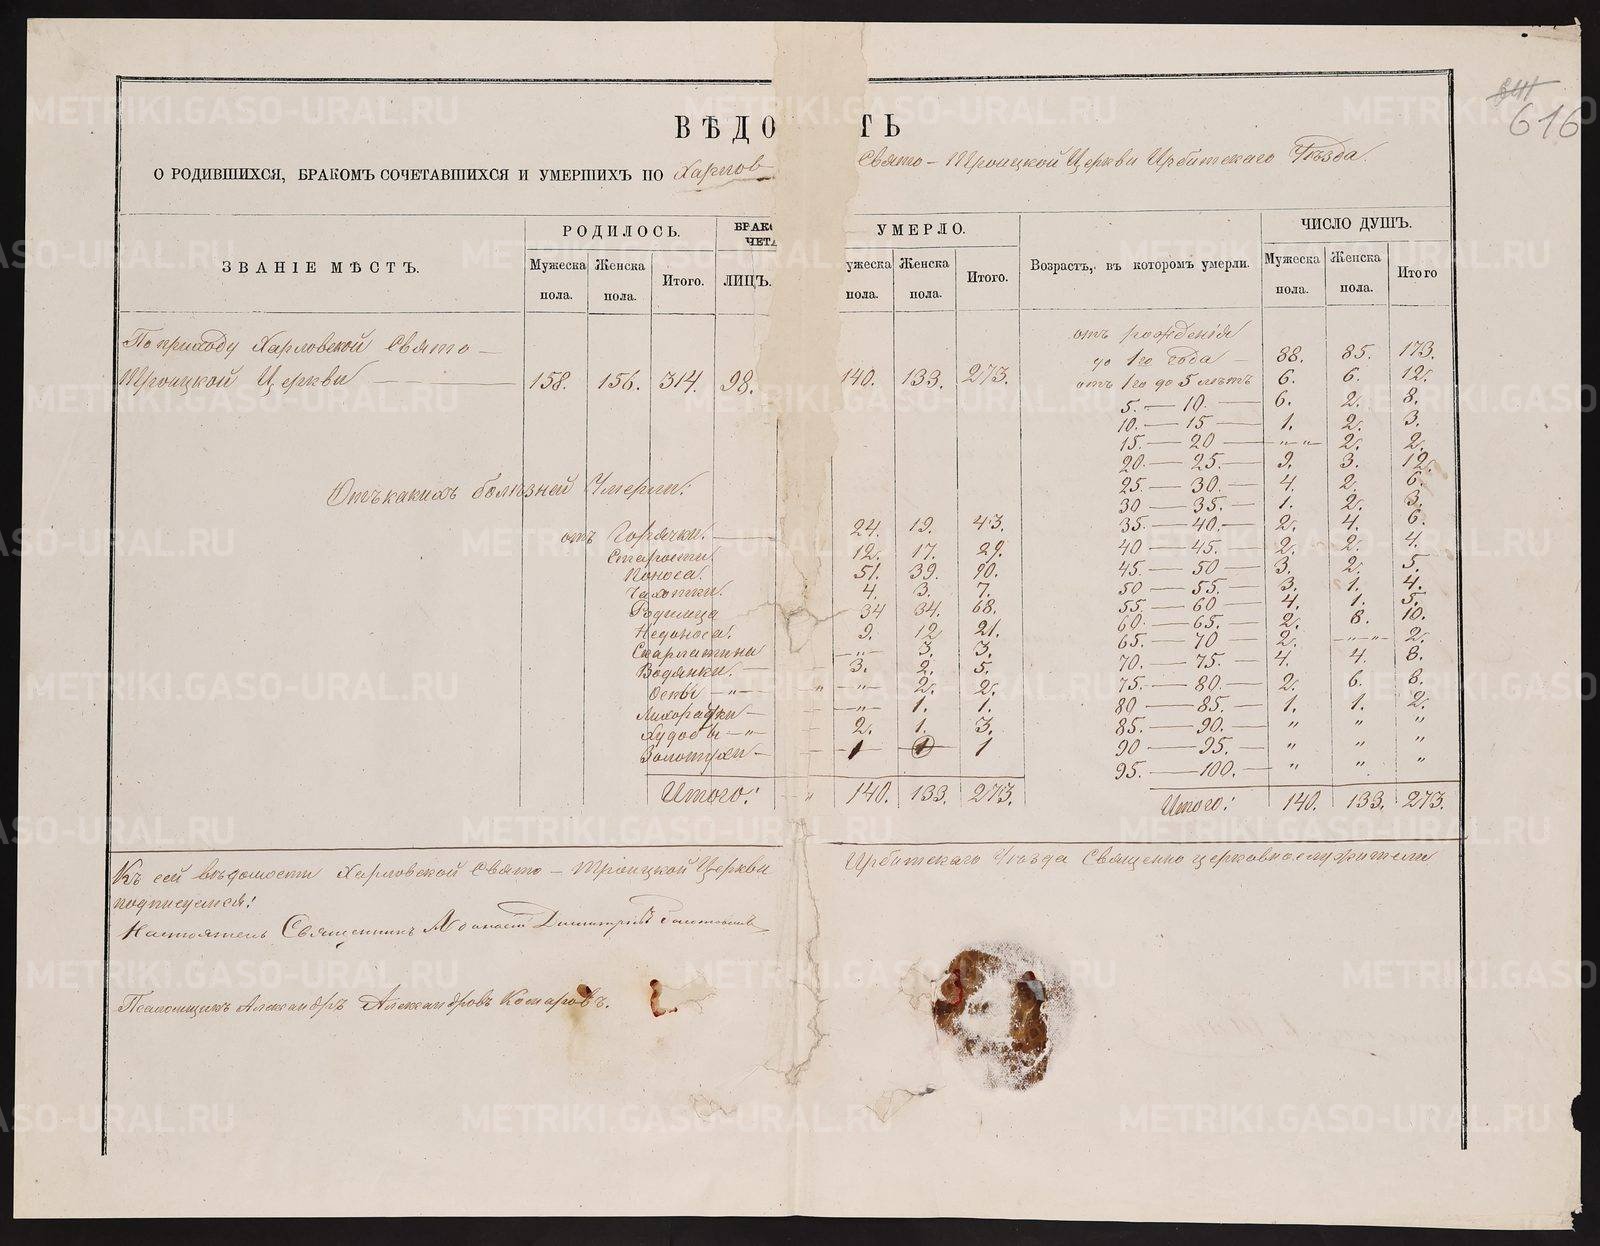 616
ВѢДО ТЬ
О РОДИВШИХСЯ, БРАКОМЪ СОЧЕТАВШИХСЯ И УМЕРШИХЪ ПО Харлов Свято-Троицкой Церкви Ирбитскаго Уѣзда.
ЗВАНІЕ МѢСТЪ. РОДИЛОСЬ. БРАК УМЕРЛО. Возрастъ, въ которомъ умерли. ЧИСЛО ДУШЪ.
ЧЕТА
Мужеска пола. Женска пола. Итого. ЛИЦЪ. ужеска пола. Женска пола. Итого. Мужеска пола. Женска пола. Итого
По приходу Харловской Свято-
Троицкой Церкви 158. 156. 314. 98. 140. 133. 273.
отъ рожденія
до 1го года 88. 85. 173.
отъ 1го до 5 лѣтъ 6. 6. 12.
5. — 10. 6. 2. 8.
10. — 15 1. 2. 3.
15. — 20 „ „ 2. 2.
20. — 25. 9. 3. 12.
25. — 30. 4. 2. 6.
30 — 35. 1. 2. 3.
35. — 40. 2. 4. 6.
40 — 45. 2. 2. 4.
45. — 50 3. 2. 5.
50 — 55. 3. 1. 4.
55. — 60 4. 1. 5.
60. — 65. 2. 8. 10.
65. — 70 2. „ „ 2.
70. — 75. 4. 4. 8.
75. — 80. 2. 6. 8.
80 — 85. 1. 1. 2.
85. — 90. „ „ „
90 — 95. „ „ „
95. — 100. „ „ „
Итого: 140. 133. 273.
Отъ какихъ болѣзней Умерли:
отъ Горячки. 24. 19. 43.
Старости 12. 17. 29.
Поноса. 51. 39. 90.
Чахотки. 4. 3. 7.
Родимца 34 34. 68.
Недоноса. 9. 12 21.
Скарлатины „ 3. 3.
Водянки. 3. 2. 5.
Оспы „ „ „ 2. 2.
Лихорадки „ 1. 1.
Худобы „ 2. 1. 3.
Золотухи 1 1 1
Итого: „ 140. 133. 273.
Къ сей вѣдомости Харловской Свято-Троицкой Церкви Ирбитскаго Уѣзда Священно церковнослужители
подписуемся:
Настоятель Священникъ Димитріевъ
Псаломщикъ Александръ Александровъ Комаровъ.
METRIKI.GASO-URAL.RU